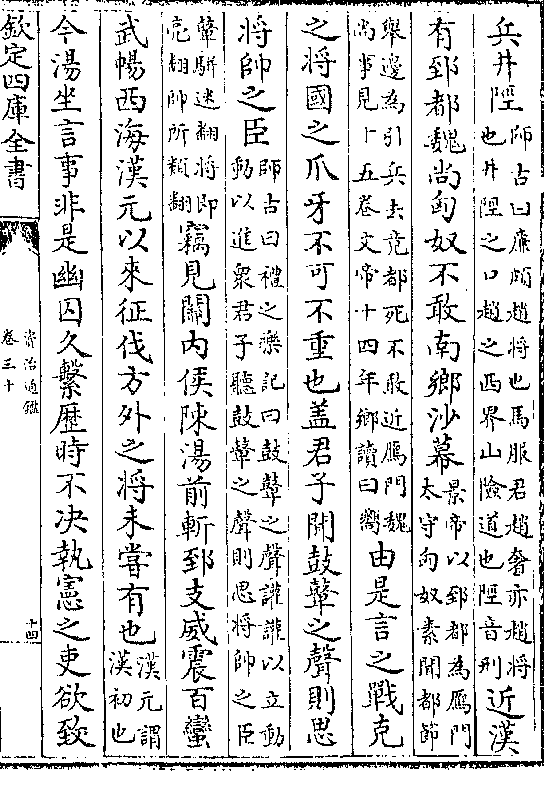 兵井陘師古曰廉頗趙將也馬服君趙奢亦趙將也井陘之口趙之西界山險道也陘音刑近漢
有郅都魏尚匈奴不敢南鄉沙幕景帝以郅都為鴈門太守匈奴素聞都節
舉邊為引兵去竟都死不敢近鴈門魏尚事見十五卷文帝十四年鄉讀曰嚮由是言之戰克
之將國之爪牙不可不重也盖君子聞鼓鼙之聲則思
將帥之臣師古曰禮之樂記曰鼓鼙之聲讙讙以立動動以進衆君子聽鼓鼙之聲則思將帥之臣
鼙騈迷翻將即亮翻帥所類翻竊見關内侯陳湯前斬郅支威震百蠻
武暢西海漢元以來征伐方外之將未嘗有也漢元謂漢初也
今湯坐言事非是幽囚久繫歷時不决執憲之吏欲致
欽定四庫全書
資治通鑑
卷三十
十四